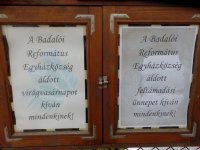 A Badalói
Református
Egyházközség
áldott
virágvasárnapot
kíván
mindenkinek!
A Badalói
Református
Egyházközség
áldott
feltámadási
ünnepet kíván
mindenkinek!